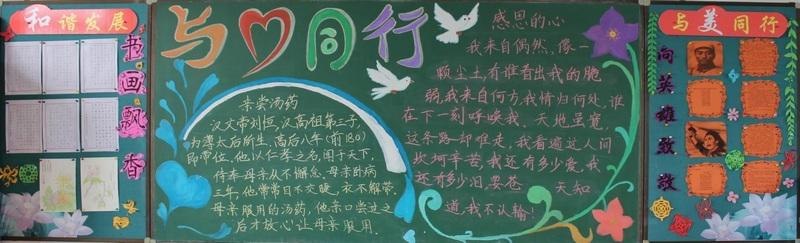 和谐发展
书画飘香
与 同行
亲尝汤药
汉文帝刘恒，汉高祖第三子，
为薄太后所生，高后八年（前180）
即帝位，他以仁孝之名，闻于天下，
侍奉母亲从不懈怠，母亲卧病
三年，他常常目不交睫，衣不解带，
母亲服用的汤药，他亲口尝过之
后才放心让母亲服用
感恩的心
我来自偶然，像一
颗尘土，有谁看出我的脆
弱，我来自何方，我情归何处，谁
在下一刻呼唤我，天地虽宽，
这条路却难走，我看遍这人间
坎坷辛苦，我还有多少爱，我
还有多少泪，要苍 天知
道，我不认输！
与美同行
向英雄致敬